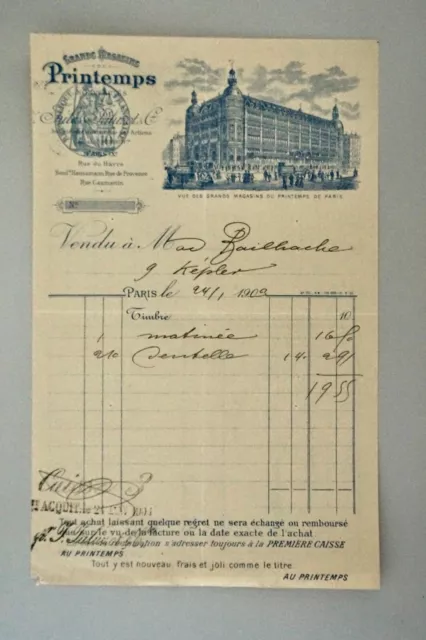 GRANDS MAGASINS
DU
Printemps
Jules Jaluzot & Cie
Rue du Havre
Boulᵈ Haussmann, Rue de Provence
Rue Caumartin
VUE DES GRANDS MAGASINS DU PRINTEMPS DE PARIS
Nº
Vendu à Mme Bailhache
9 Képler
PARIS le 24/1 1909
Timbre 10
1 matinée
210 dentelle 14. 2 91
19 55
Caisse 3
ACQUIT, le
Tout achat laissant quelque regret ne sera échangé ou remboursé
que sur le vu de la facture ou la date exacte de l'achat
s'adresser toujours à la PREMIÈRE CAISSE
AU PRINTEMPS
Tout y est nouveau frais et joli comme le titre
AU PRINTEMPS